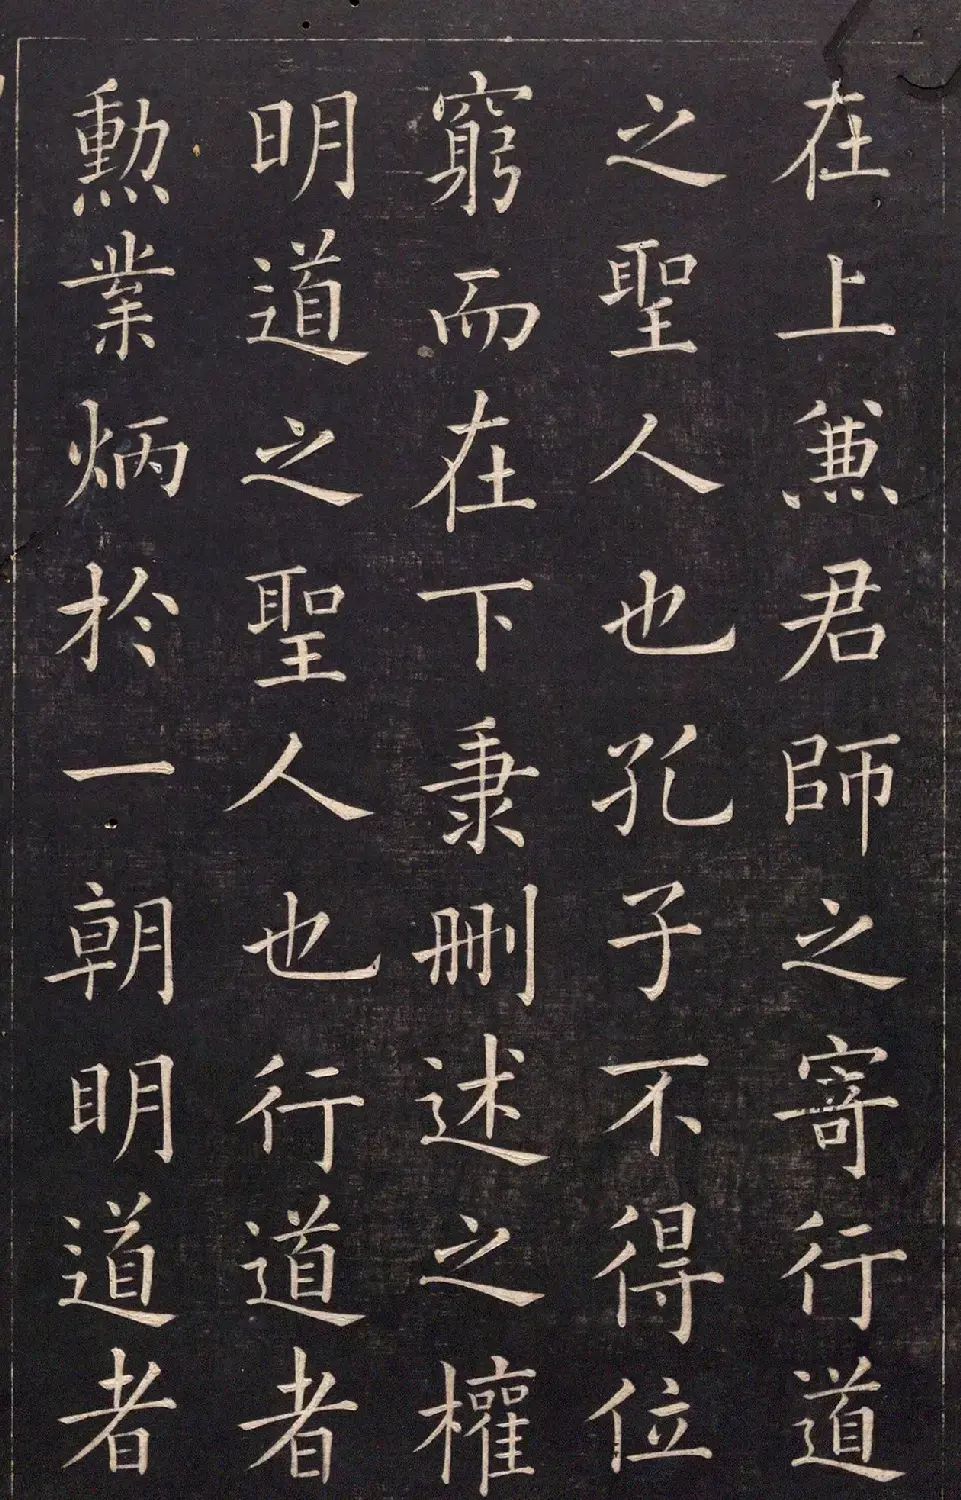 在上兼君師之寄行道
之聖人也孔子不得位
窮而在下秉刪述之權
明道之聖人也行道者
勲業炳於一朝明道者